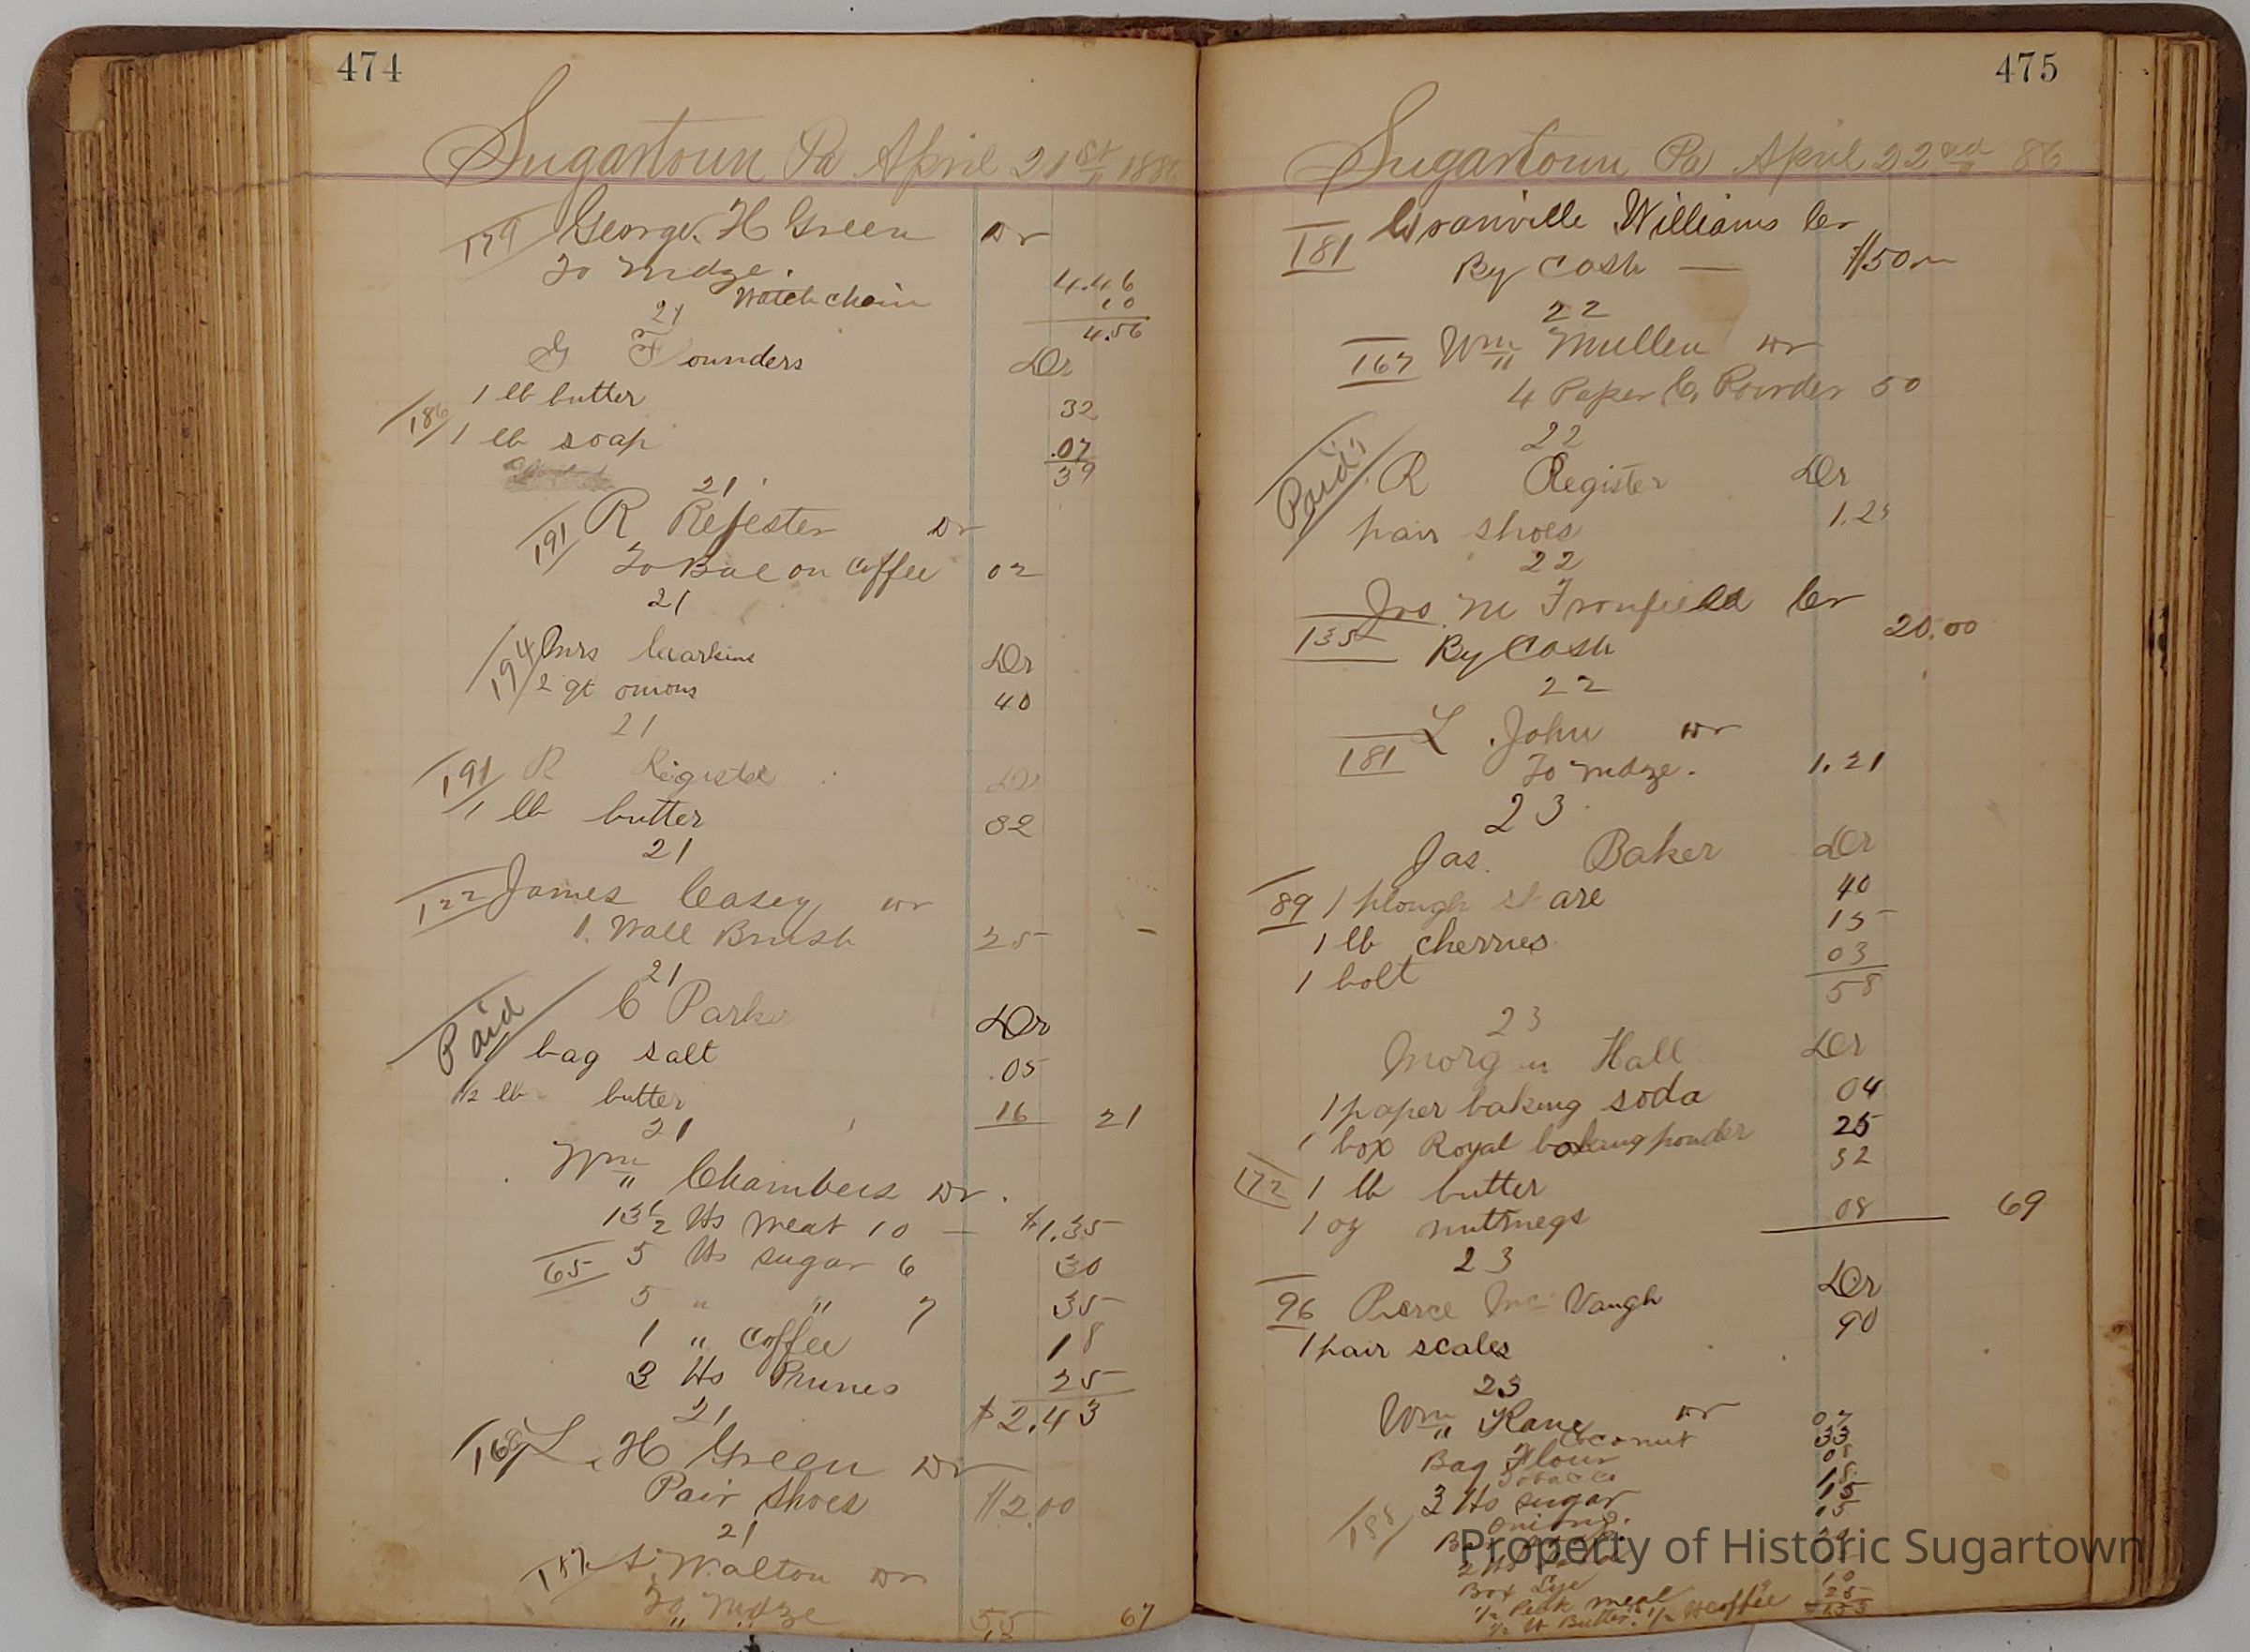 474
Sugartown Pa April 21st 188
179 George H Green Dr
To Mdze. 4.46
Watch chain 10
4.56
21
G Flounders Dr
1 lb butter 32
186
1 lb soap .07
39
21
R Rejester Dr
191
To Bal on Coffee 02
21
Mrs Dr
194 2 qt onions 40
21
191 R Register Dr
1 lb butter 32
21
122 James Casey Dr
1. Wall Brush 25
21
C Parker Dr
Paid
bag salt .05
1/2 lb butter 16 21
21
Wm Chambers Dr.
13 1/2 lbs meat 10 — $1.35
65 5 lbs sugar 6 30
5 " " 7 35
1 " Coffee 18
3 lbs Prunes 25
$2.43
21
168 L. H Green Dr
Pair Shoes $2.00
21
157 Walton Dr
To Mdze 55
67
475
Sugartown Pa April 22nd 86
181 Granville Williams Cr
By Cash — $50
22
167 Wm Mullen Dr
4 Paper C. Powder 50
22
Paid
R Register Dr
pair shoes 1.25
22
Jos. M Fronfield Cr
135 By Cash 20.00
22
181 L. John Dr
To Mdze. 1.21
23
Jas. Baker Dr
89 1 plough share 40
1 lb cherries 15
1 bolt 03
58
23
Morgan Hall Dr
1 paper baking soda 04
1 box Royal baking powder 25
172 1 lb butter 32
1 oz nutmegs 08 69
23
96 Pierce Mc Vaugh Dr
1 pair scales 90
23
Wm Kane Dr
Coconut 07
Bag Flour 33
Tobacco 08
3 lbs sugar 18
188 Onions. 15
Box Lye 10
1/2 Peck meal
1/2 lb Butter. 1/2 lb Coffee 25
Property of Historic Sugartown